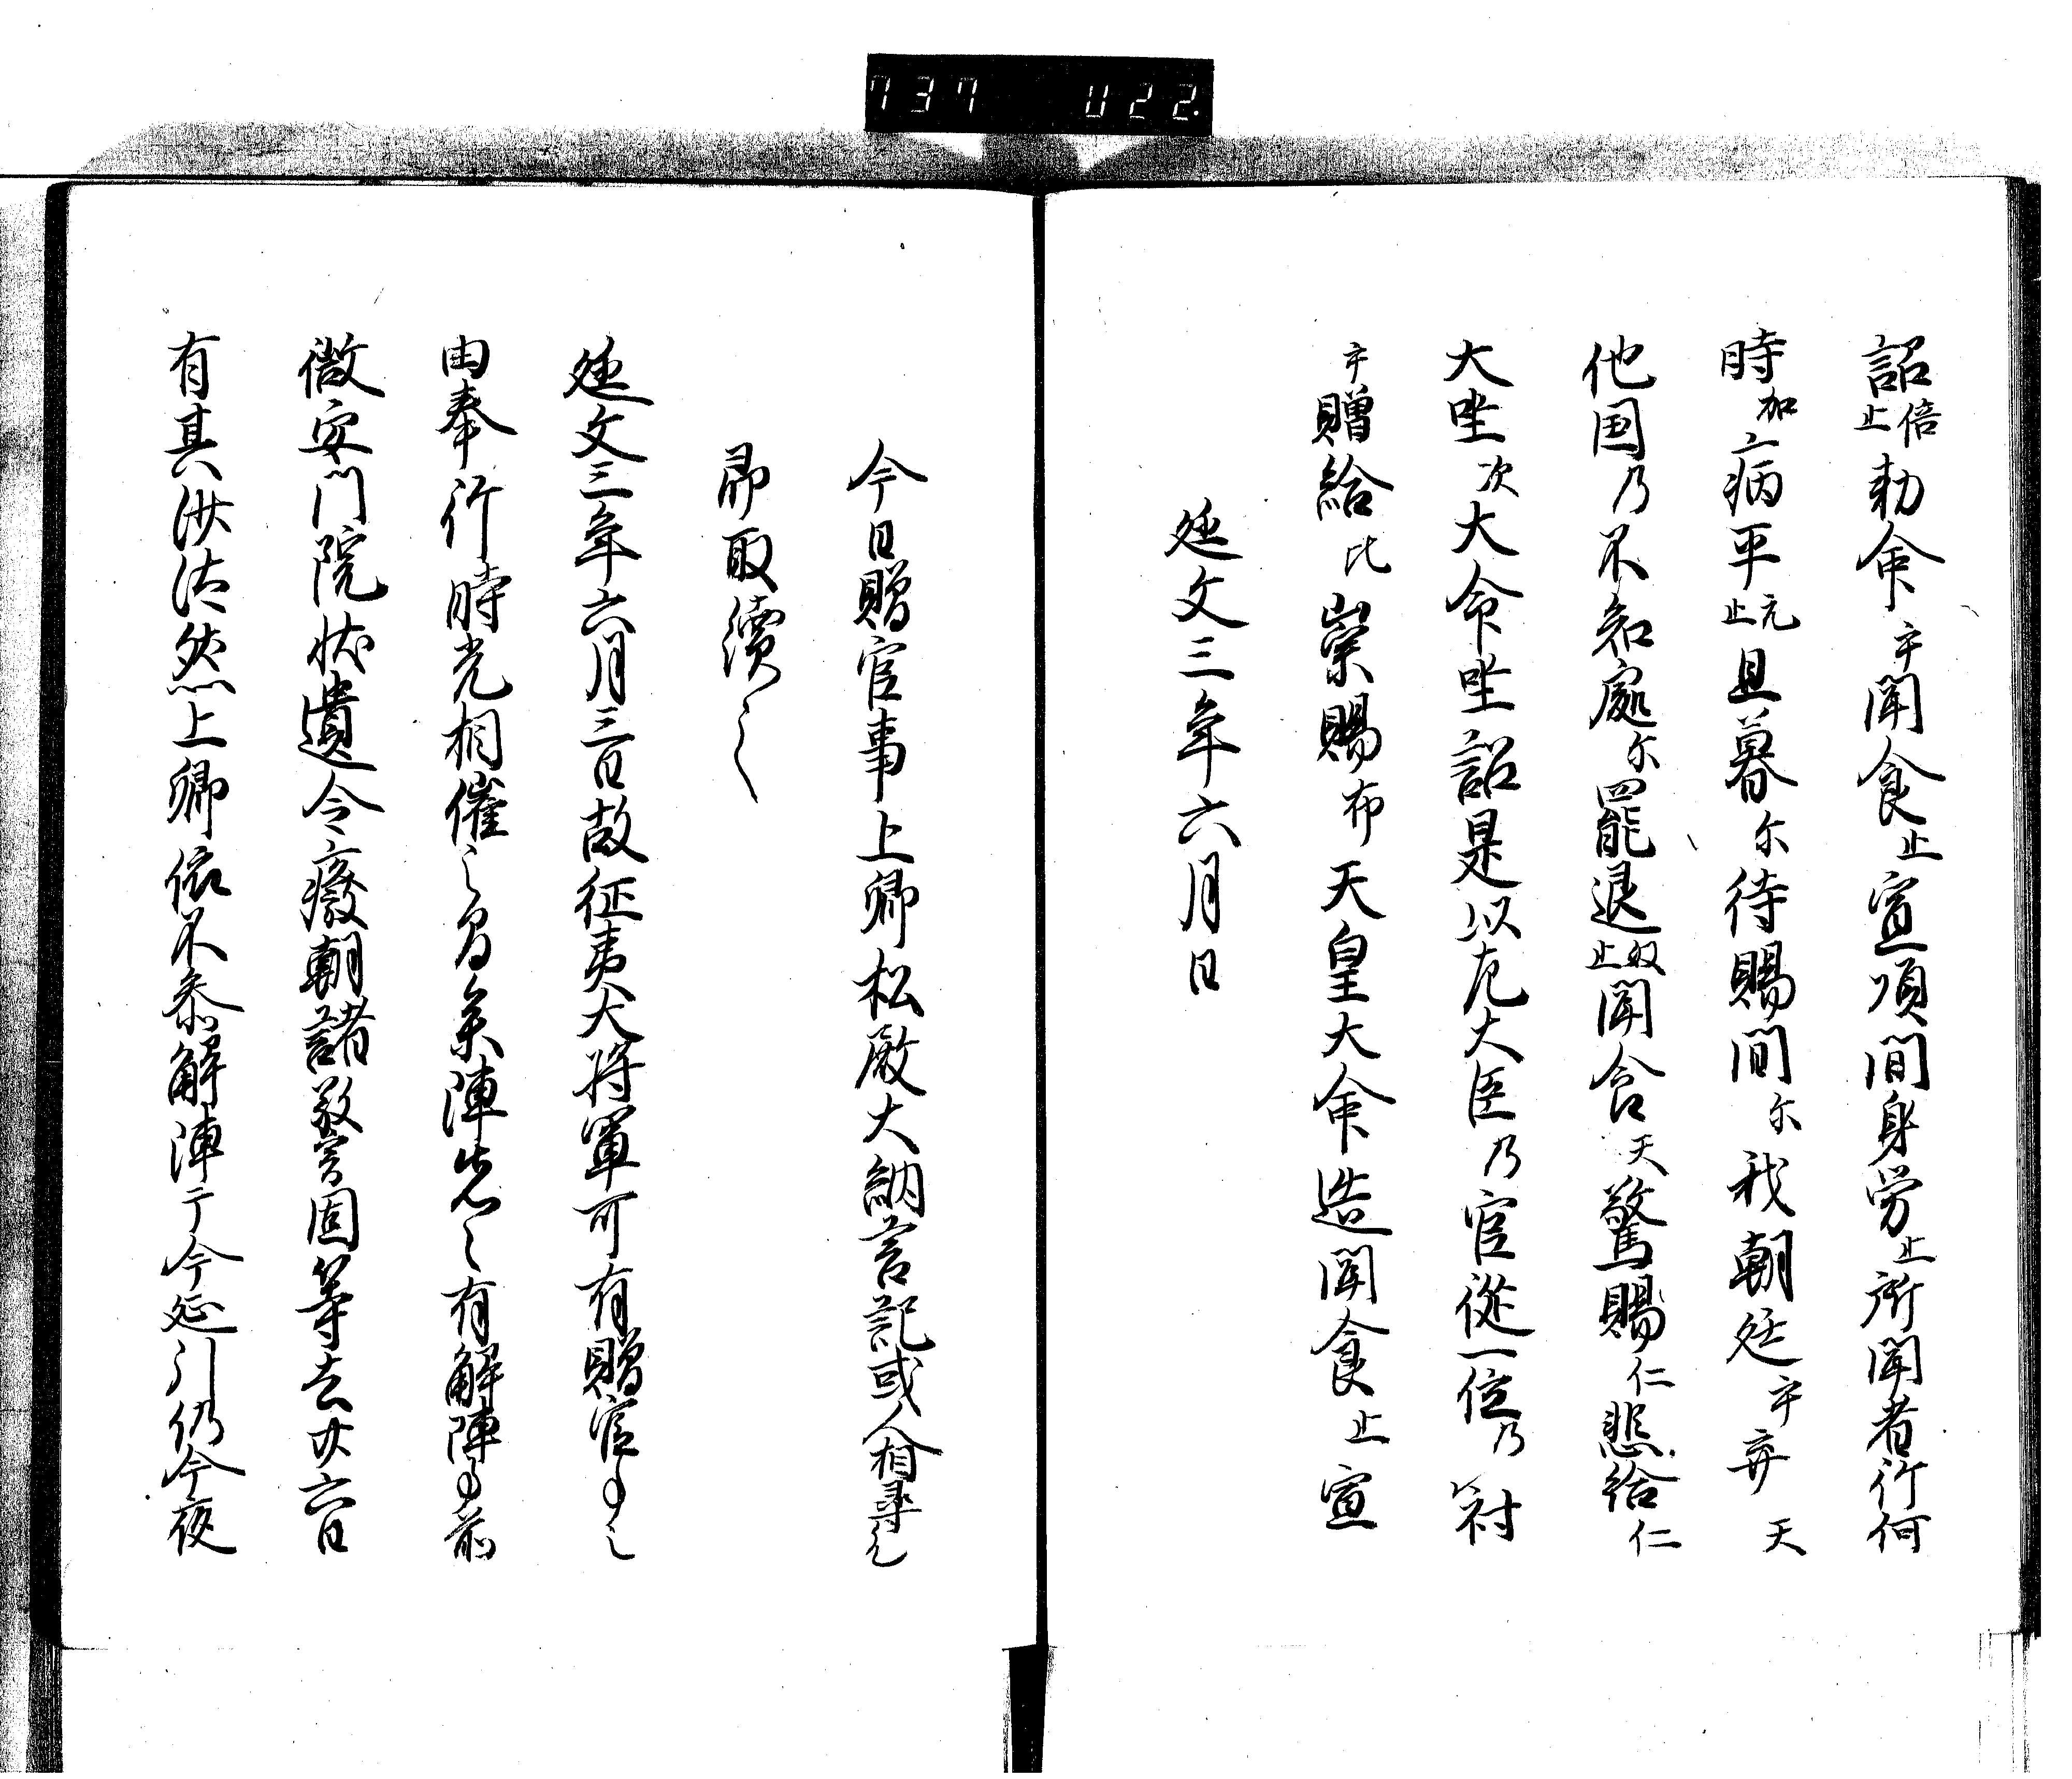 737 022.
詔倍止勅命乎聞食止宣項間身労止所聞者行何
時加病平元止且暮尓待賜間尓我朝廷乎弃天
他国乃不知處尓罷退奴止聞食天驚賜仁悲給仁
大坐次大命坐詔是以左大臣乃官従一位乃衬
乎贈給比崇賜布天皇大命遠聞食止宣
延文三年六月日
今日贈官事上卿松殿大納言記或人相尋之
即取續之
延文三年六月三日故征夷大将軍可有贈官事之
由奉行時光相催之間参陣先之有解陣事前
徽安門院状遺令廃朝諸警固等去廿六日
有其沙汰然上卿依不参解陣于今延引仍今夜